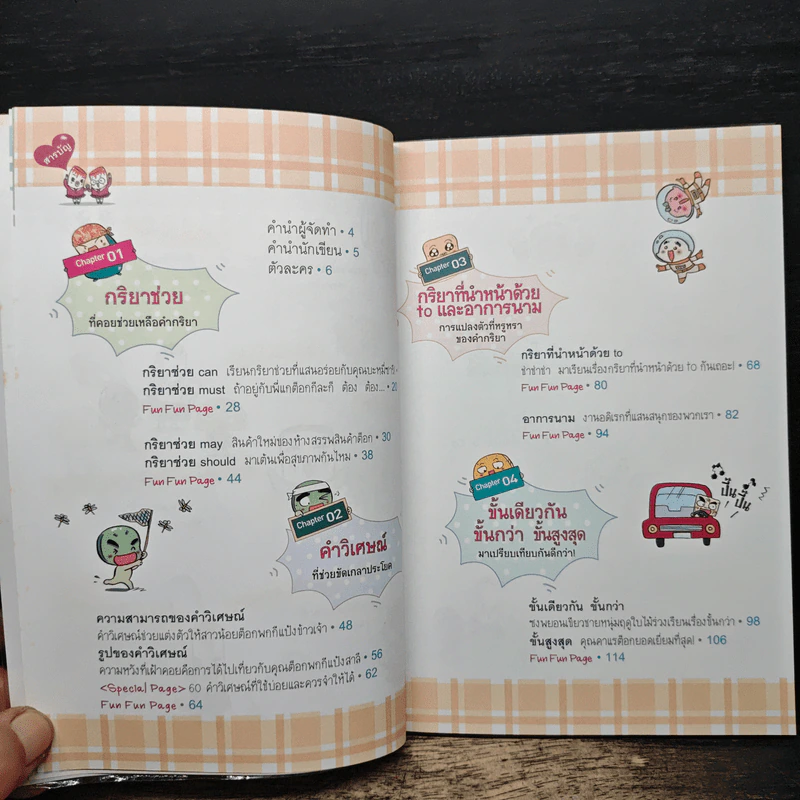 สารบัญ
คำนำผู้จัดทำ • 4
คำนำนักเขียน • 5
ตัวละคร • 6
Chapter 01
กริยาช่วย
ที่คอยช่วยเหลือคำกริยา
กริยาช่วย can เรียนกริยาช่วยที่แสนอร่อยกับคุณบะหมี่ซาชิ •
กริยาช่วย must ถ้าอยู่กับพี่แกต๊อกก็ละก็ ต้อง ต้อง... • 20
Fun Fun Page • 28
กริยาช่วย may สินค้าใหม่ของห้างสรรพสินค้าต๊อก • 30
กริยาช่วย should มาเต้นเพื่อสุขภาพกันไหม • 38
Fun Fun Page • 44
Chapter 02
คำวิเศษณ์
ที่ช่วยขัดเกลาประโยค
ความสามารถของคำวิเศษณ์
คำวิเศษณ์ช่วยแต่งตัวให้สาวน้อยต๊อกพกกีแป้งข้าวเจ้า • 48
รูปของคำวิเศษณ์
ความหวังที่เฝ้าคอยคือการได้ไปเที่ยวกับคุณต๊อกพกกีแป้งสาลี • 56
<Special Page> 60 คำวิเศษณ์ที่ใช้บ่อยและควรจำให้ได้ • 62
Fun Fun Page • 64
Chapter 03
กริยาที่นำหน้าด้วย
to และอาการนาม
การแปลงตัวที่หรูหรา
ของคำกริยา
กริยาที่นำหน้าด้วย to
ช่าช่าช่า มาเรียนเรื่องกริยาที่นำหน้าด้วย to กันเถอะ! • 68
Fun Fun Page • 80
อาการนาม งานอดิเรกที่แสนสนุกของพวกเรา • 82
Fun Fun Page • 94
Chapter 04
ขั้นเดียวกัน
ขั้นกว่า ขั้นสูงสุด
มาเปรียบเทียบกันดีกว่า!
ปิ๊น
ปิ๊น
ขั้นเดียวกัน ขั้นกว่า
ซงพยอนเขียวชายหนุ่มฤดูใบไม้ร่วงเรียนเรื่องขั้นกว่า • 98
ขั้นสูงสุด คุณคาแรต๊อกยอดเยี่ยมที่สุด! • 106
Fun Fun Page • 114